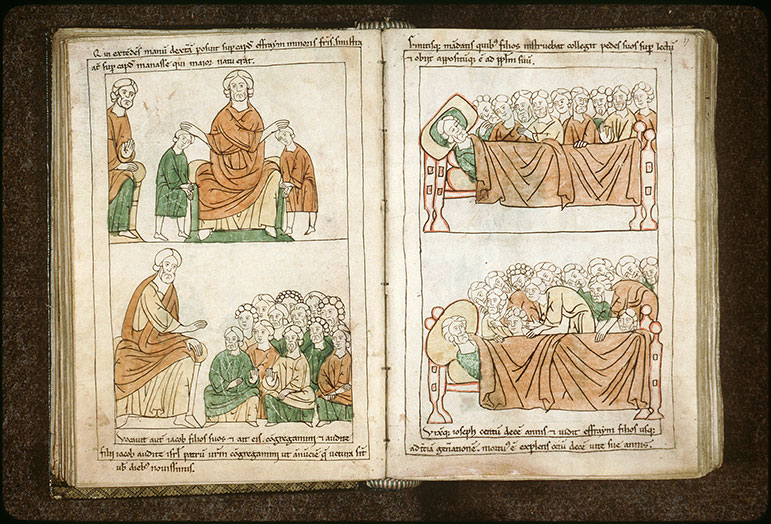 Q in extēdēs manū dextā posuit sup capđ effraym minoris fris. sinistrā
at sup capđ manasse qui maior natu erat.
vocavit aut iacob filios suos & ait eis. cōgregamini & audite
filii iacob audite isrl patrū urm cōgregamini ut anūciē q̄ ventura sīt
vob diebus novissimis.
Finitisq mādatis quibus filios instruebat collegit pedes suos sup lectū
& obiit appositusq ē ad pplm suū.
Vixitq ioseph centū decē annis & vidit effraym filios usq
ad tciā genationē. mortuus ē expletis cētū decē vite sue annis.